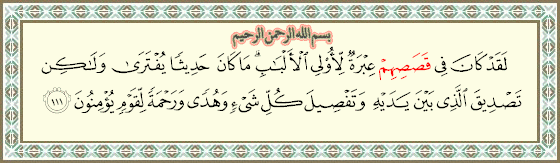 بسم الله الرحمن الرحيم
لَقَدْ كَانَ فِى قَصَصِهِمْ عِبْرَةٌ لِّأُو۟لِى ٱلْأَلْبَٰبِ ۗ مَا كَانَ حَدِيثًا يُفْتَرَىٰ وَلَٰكِن
تَصْدِيقَ ٱلَّذِى بَيْنَ يَدَيْهِ وَتَفْصِيلَ كُلِّ شَىْءٍ وَهُدًى وَرَحْمَةً لِّقَوْمٍ يُؤْمِنُونَ ١١١